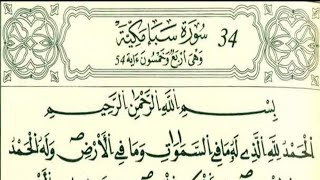 34 سُورَةُ سَبَإٍ مَكِّيَّةٌ
وَهِىَ أَرْبَعٌ وَخَمْسُونَ ءَايَةً 54
بِسْمِ اللَّهِ الرَّحْمَٰنِ الرَّحِيمِ
الْحَمْدُ لِلَّهِ الَّذِى لَهُ مَا فِى السَّمَٰوَٰتِ وَمَا فِى الْأَرْضِ وَلَهُ الْحَمْدُ